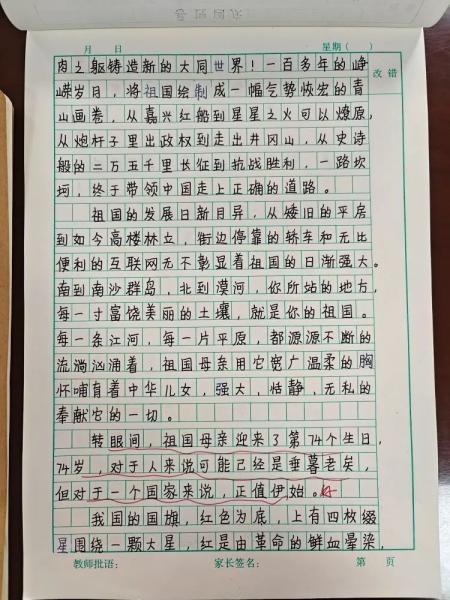 月 日 星期( )
改错
肉之躯铸造新的大同世界!一百多年的峥
嵘岁月,将祖国绘制成一幅气势恢宏的青
山画卷,从嘉兴红船到星星之火可以燎原,
从炮杆子里出政权到走出井冈山,从史诗
般的二万五千里长征到抗战胜利,一路坎
坷,终于带领中国走上正确的道路。
祖国的发展日新月异,从矮旧的平房
到如今高楼林立,街边停靠的轿车和无比
便利的互联网无不彰显着祖国的日渐强大。
南到南沙群岛,北到漠河,你所站的地方,
每一寸富饶美丽的土壤,就是你的祖国。
每一条江河,每一片平原,都源源不断的
流淌汹涌着,祖国母亲用它宽广温柔的胸
怀哺育着中华儿女,强大,恬静,无私的
奉献它的一切。
转眼间,祖国母亲迎来了第74个生日,
74岁,对于人来说可能已经是垂暮老矣,
但对于一个国家来说,正值伊始。
我国的国旗,红色为底,上有四枚缀
星围绕一颗大星,红是由革命的鲜血晕染,
教师批语: 家长签名: 第 页